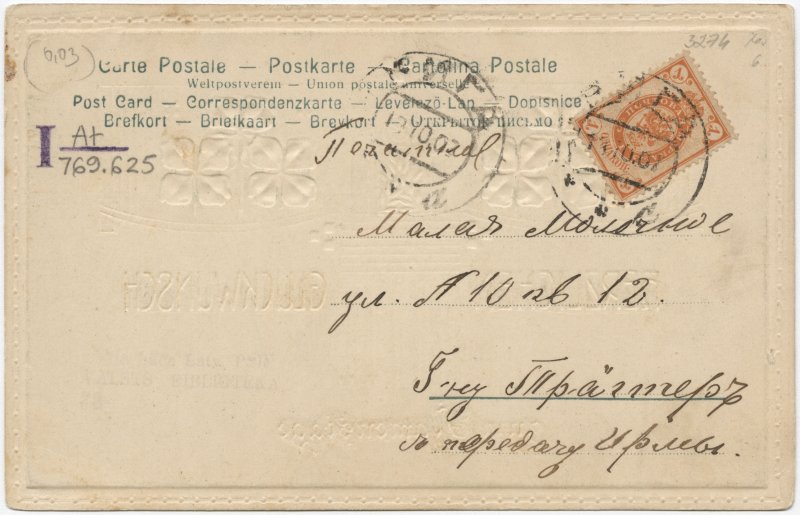 6,03
3274
Carte Postale — Postkarte — Cartolina Postale
Weltpostverein — Union postale universelle
Post Card — Correspondenzkarte — Levelező-Lap — Dopisnice
Brefkort — Briefkaart — Brevkort — Открытое письмо
I At
769.625
10.07
Малая Молочное
ул. № 10 кв 12.
GLÜCKWUNSCH
VALSTS BIBLIOTEKA
Г-ну Трägтеръ
передачу Ирмы.